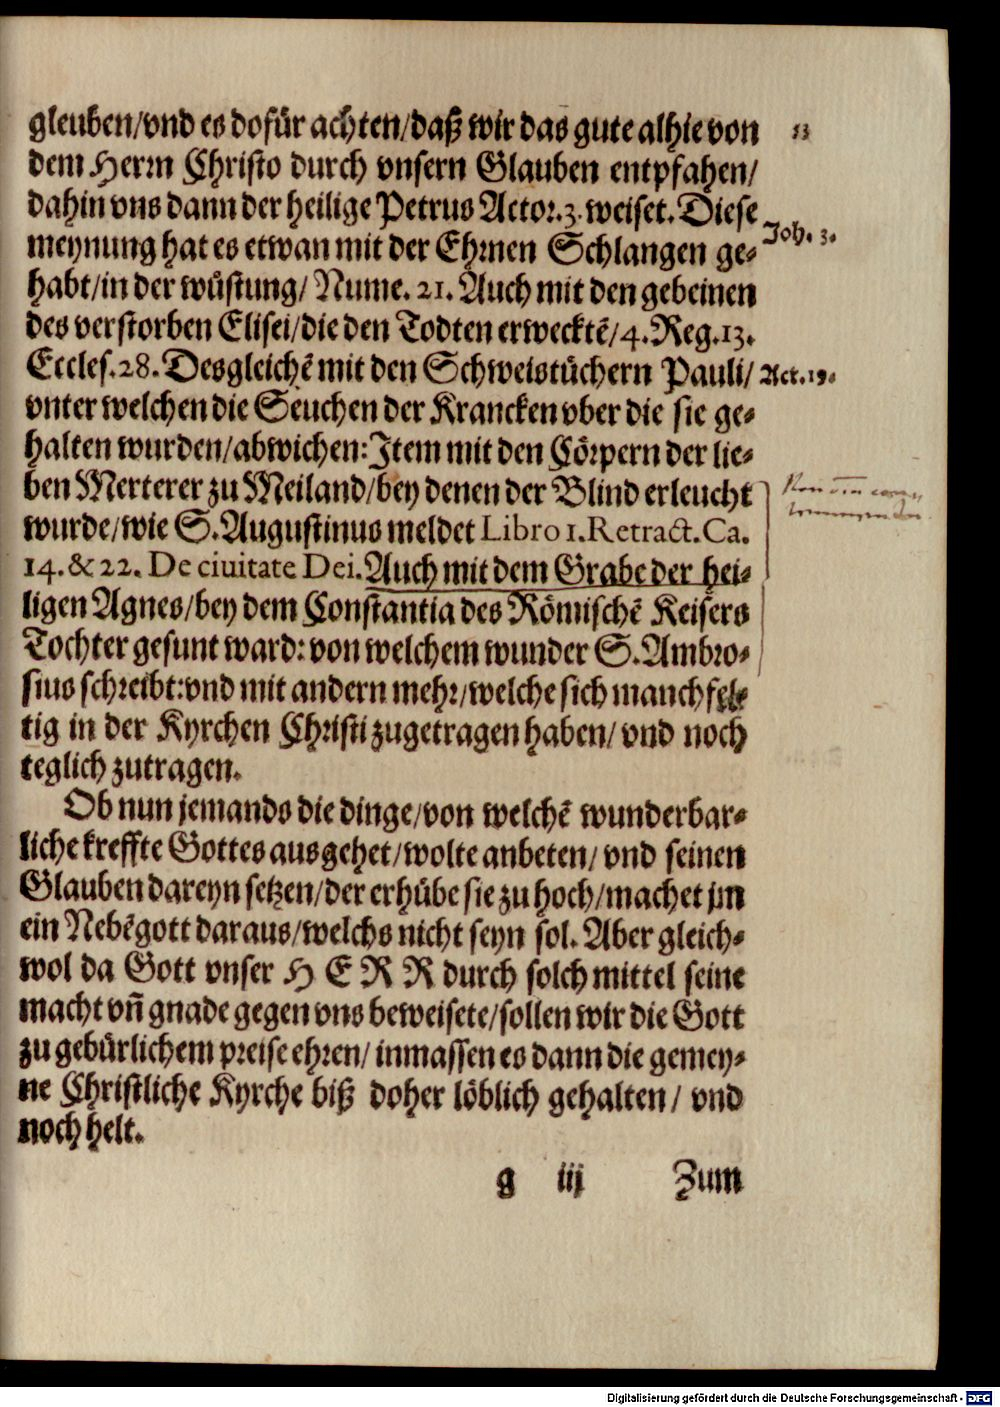 gleuben/vnd es dofür achten/daß wir das gute alhie von
53
dem Herrn Christo durch vnsern Glauben entpfahen/
dahin vns dann der heilige Petrus Actor.3. weiset. Diese
Joh. 3.
meynung hat es etwan mit der Ehrnen Schlangen ge-
habt/in der wüstung/ Nume. 21. Auch mit den gebeinen
des verstorben Elisei/die den Todten erwecktē/4. Reg.13.
Eccles.28. Desgleichē mit den Schweistüchern Pauli/
Act.19.
vnter welchen die Seuchen der Krancken vber die sie ge-
halten wurden/abwichen: Item mit den Cörpern der lie-
ben Merterer zu Meiland/bey denen der Blind erleucht
wurde/wie S. Augustinus meldet Libro 1. Retract. Ca.
14. & 22. De ciuitate Dei. Auch mit dem Grabe der hei-
ligen Agnes/bey dem Constantia des Römischē Keisers
Tochter gesunt ward: von welchem wunder S. Ambro-
sius schreibt: vnd mit andern mehr/welche sich manchfel-
tig in der Kyrchen Christi zugetragen haben/ vnd noch
teglich zutragen.
Ob nun jemands die dinge/von welchē wunderbar-
liche kreffte Gottes ausgehet/wolte anbeten/ vnd seinen
Glauben dareyn setzen/der erhübe sie zu hoch/machet jm
ein Nebēgott daraus/welchs nicht seyn sol. Aber gleich-
wol da Gott vnser H E R R durch solch mittel seine
macht vn̄ gnade gegen vns beweisete/sollen wir die Gott
zu gebürlichem preise ehren/ inmassen es dann die gemey-
ne Christliche Kyrche biß doher löblich gehalten/ vnd
noch helt.
g iij Zum
Digitalisierung gefördert durch die Deutsche Forschungsgemeinschaft - DFG